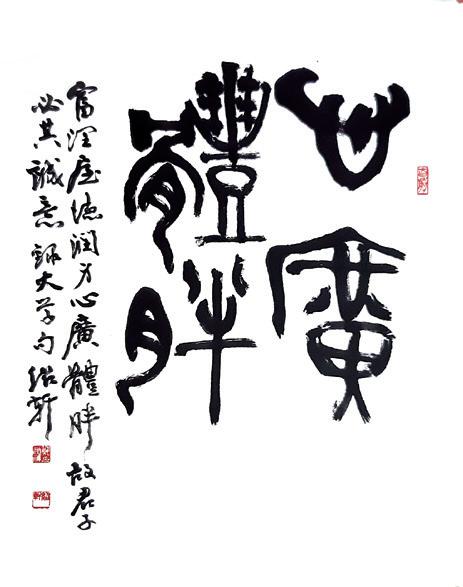 心廣
體胖
富潤屋德潤身心廣體胖故君子
必其誠意錄大學句